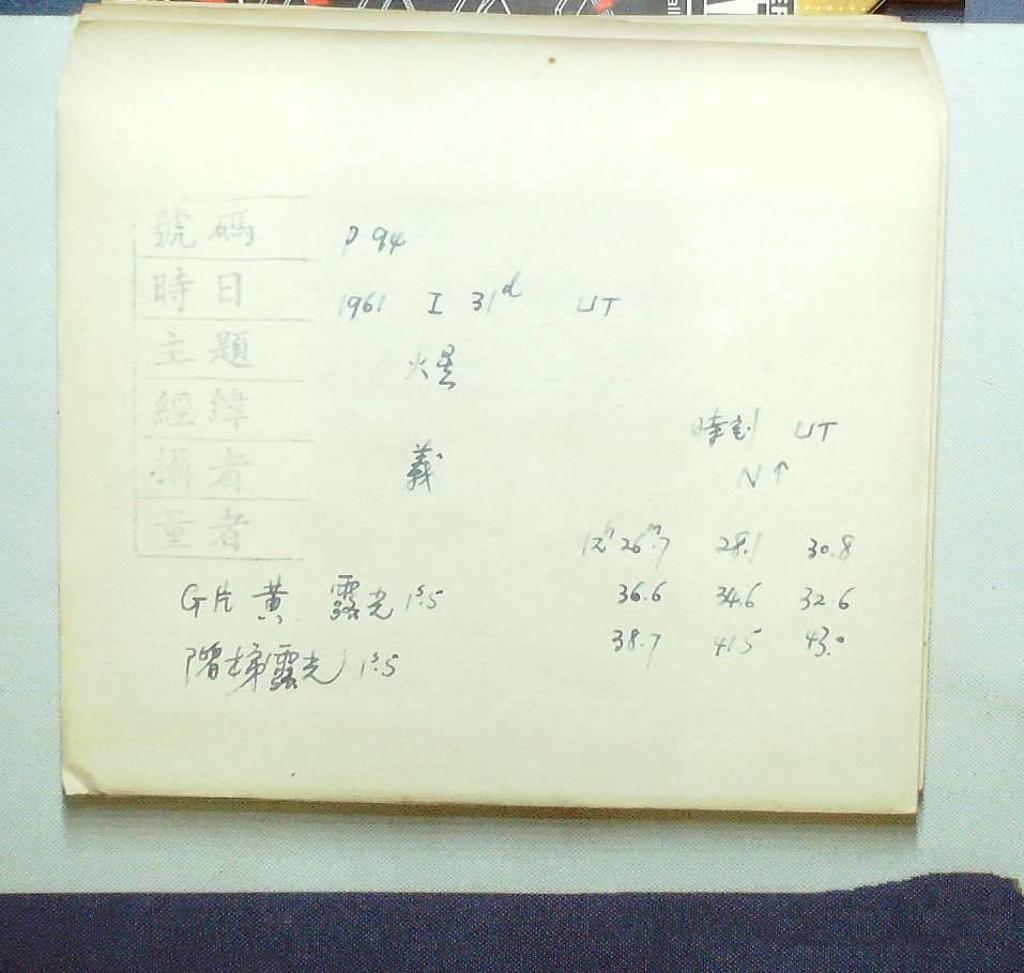 號碼 P 94
時日 1961 I 31d UT
主題 火星
經緯
時刻 UT
攝者 義 N↑
量者 12h 26m.7 28.1 30.8
G片 黄 露光 1s.5 36.6 34.6 32.6
38.7 41.5 43.0
階梯露光 1s.5